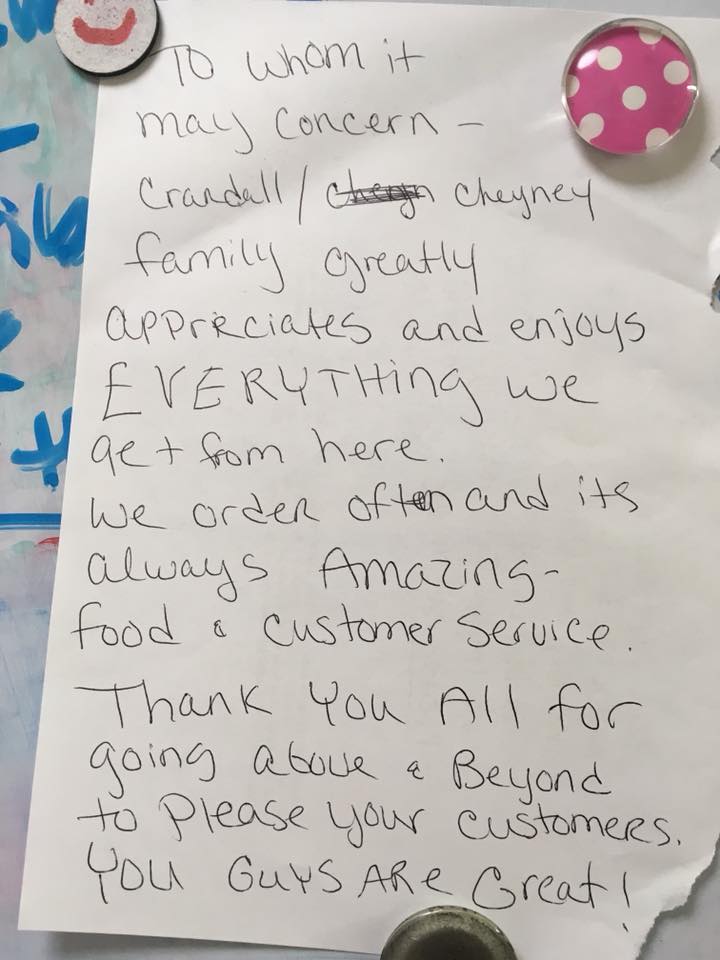 To whom it
may concern -
Crandall / Cheyney
family greatly
appreciates and enjoys
EVERYTHing we
get from here.
we order often and its
always Amazing-
food & customer service.
Thank you All for
going above & Beyond
to Please your customers.
you Guys ARe Great!